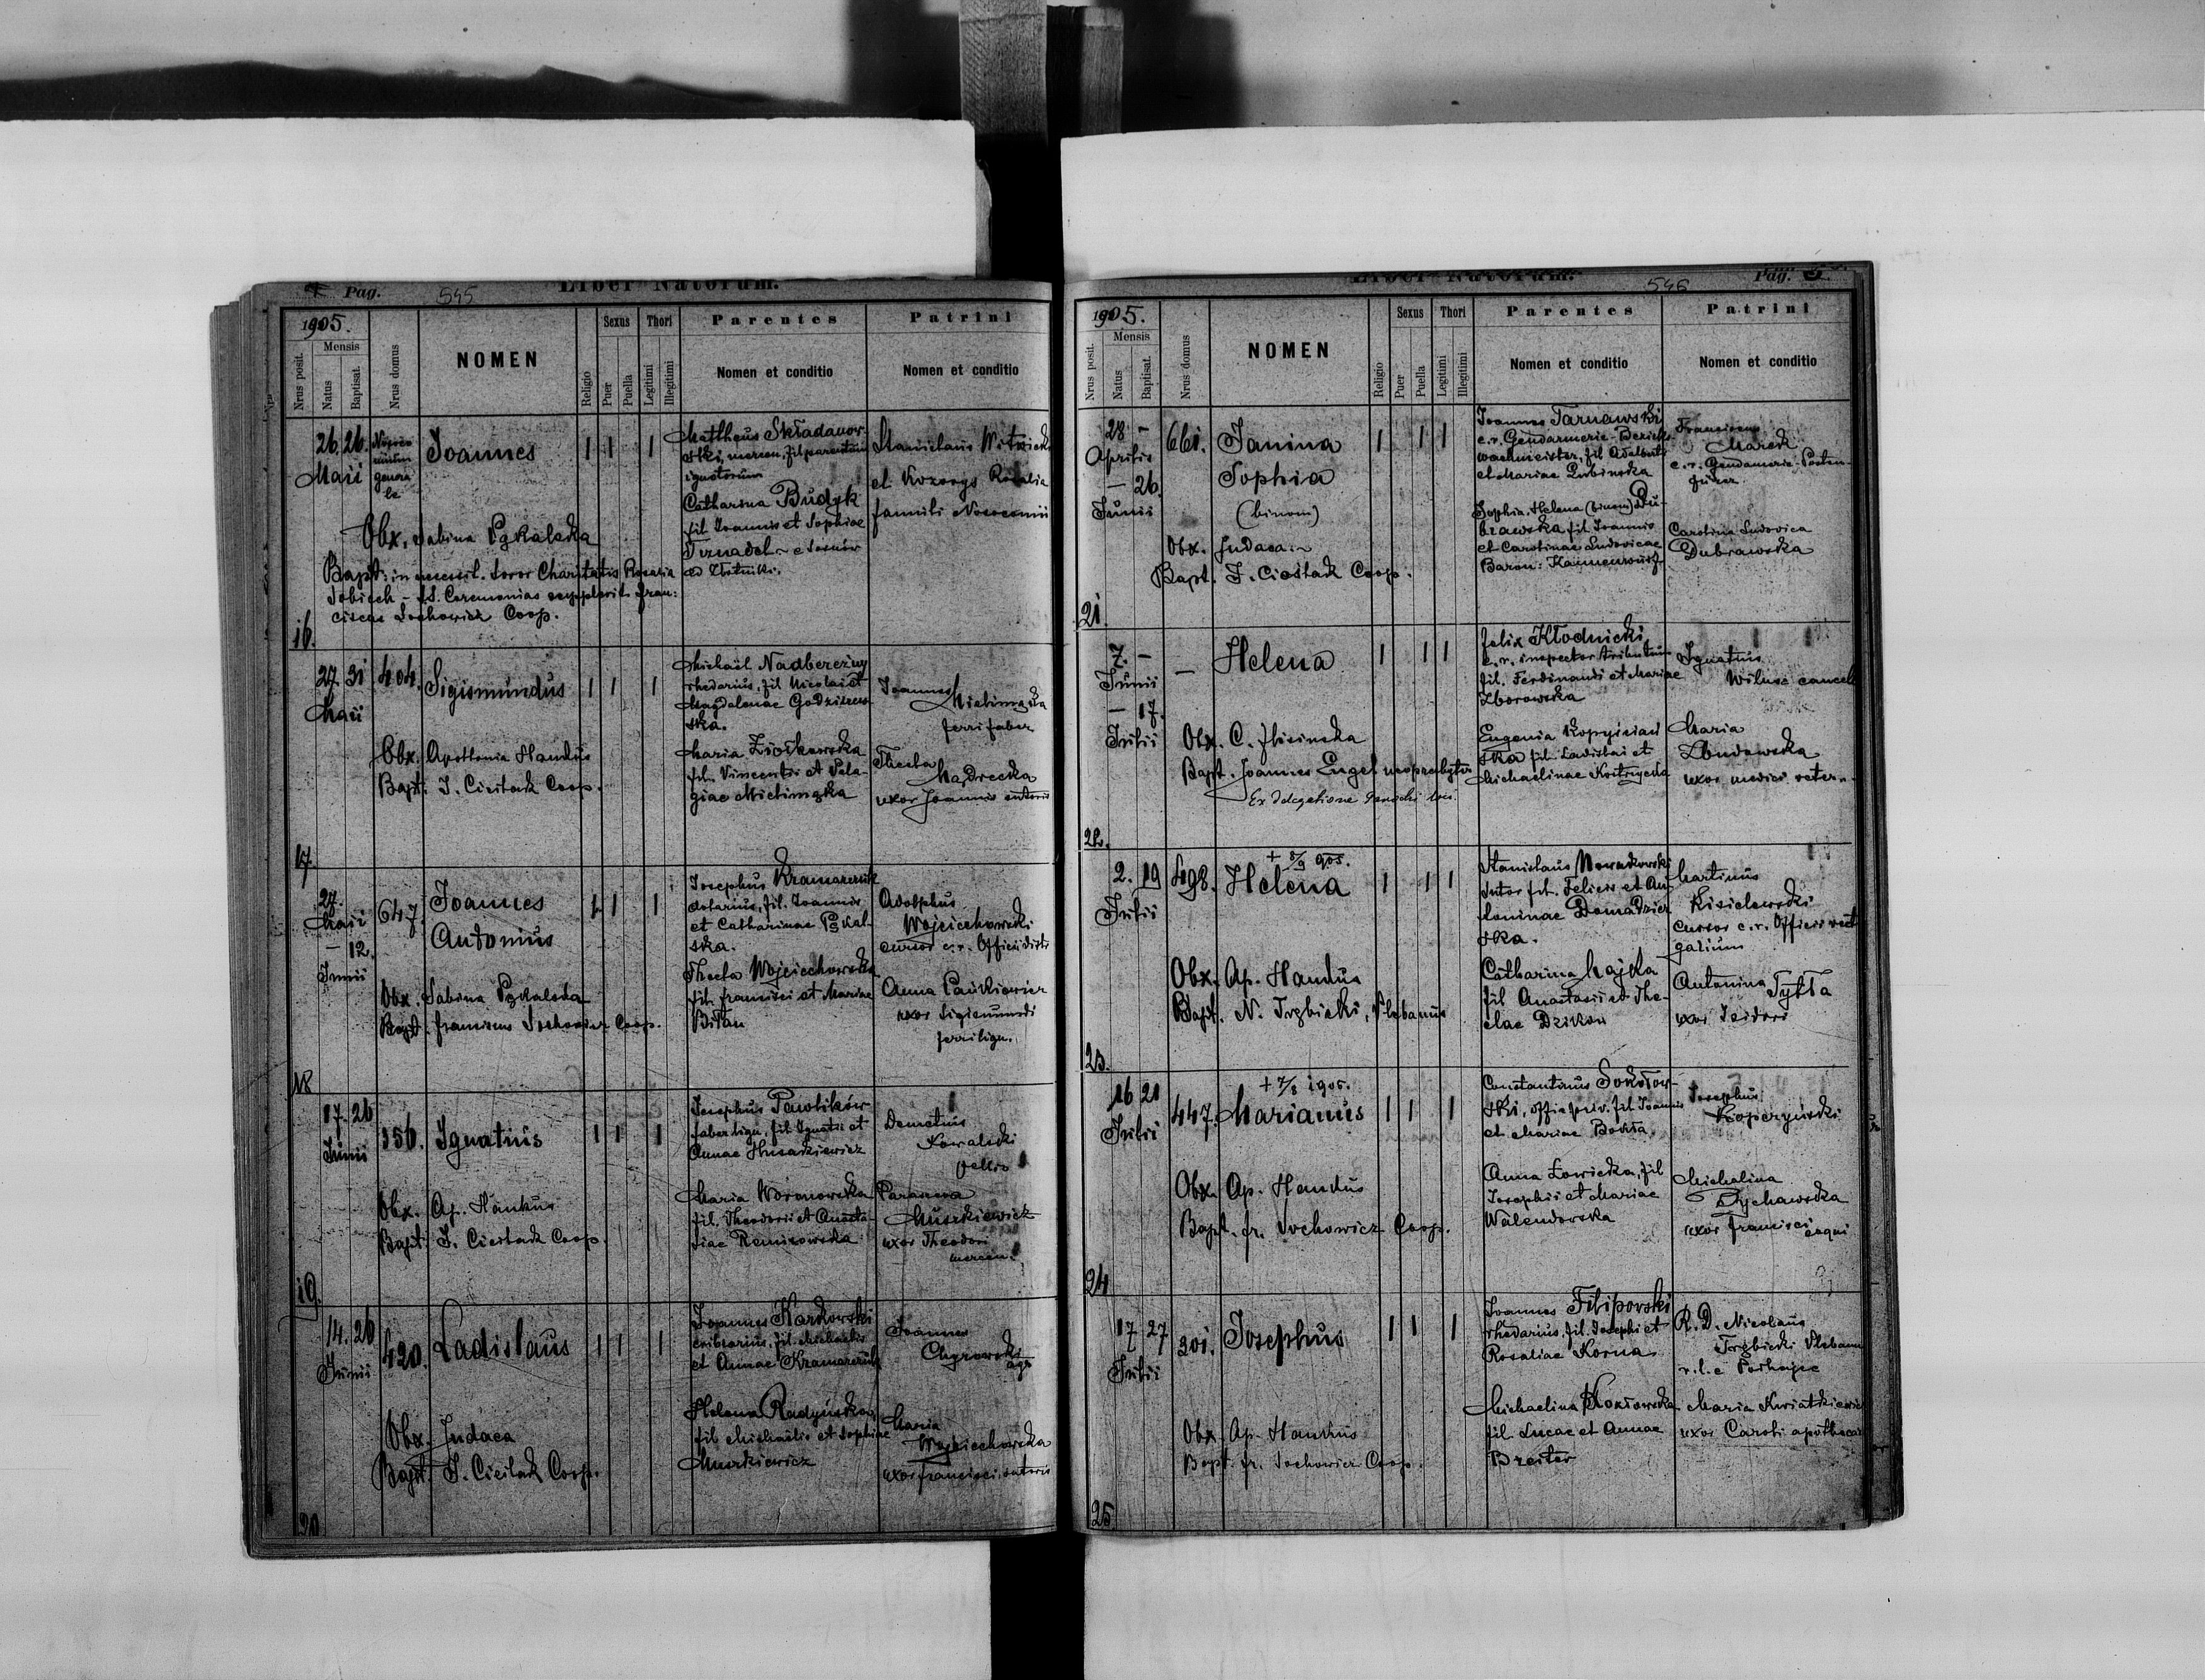 4 Pag. 545 Liber Natorum.
1905.
Nrus posit.
Mensis
Natus
Baptisat.
Nrus domus
NOMEN
Religio
Sexus
Puer
Puella
Thori
Legitimi
Illegitimi
Parentes
Nomen et conditio
Patrini
Nomen et conditio
26. 26.
Maii
Joannes
1 1 1
Mattheus Składanow-
ski, mercen. fil. parentum
ignotorum
Catharina Budyk
fil. Joannis et Sophiae
ad Złotniki.
Stanislaus
et Rosalia
famuli Nosocomii
Obx. Sabina Pękalska
Bapt: in necessit. Soror Charitatis Rosalia
SS. Ceremonias supplevit Fran:
ciscus Sochowicz Coop.
16.
27 31
Maii
404.
Sigismundus
1 1 1
Michaël Nadbereżny
rhedarius, fil. Nicolai et
Magdalenae Godziszew-
ska.
Maria Ziółkowska
fil. Vincentii et Pela-
giae
Joannes
ferri faber
Thecla
Mądrecka
uxor Joannis sutoris
Obx. Apollonia Hankus
Bapt. J. Cieślak Coop.
17.
27.
Maii
— 12.
Junii
647.
Joannes
Antonius
1 1 1
Josephus Kramarczuk
fil. Joannis
et Catharinae Pękal-
ska.
Thecla Wojciechowska
fil. Francisci et Mariae
Bilan
Adolphus
Wojciechowski
cursor c.r. Officii
Anna Pańkiewicz
uxor Sigismundi
ferri
Obx. Sabina Pękalska
Bapt. Franciscus Sochowicz Coop.
18
17. 26
Junii
156.
Ignatius
1 1 1
Josephus Pawlików
faber lign. fil. Ignatii et
Annae Husarkiewicz
Maria Woronowska
fil. Theodori et Anasta-
siae Remizowska
Demetrius
Kowalski
pellio
Parasceva
Muszkiewicz
uxor Theodori
mercen.
Obx. Ap. Hankus
Bapt. J. Cieślak Coop.
19.
14. 26
Junii
420.
Ladislaus
1 1 1
Joannes Karkowski
fil. Michaëlis
et Annae Kramarczuk
Helena Radyńska
fil. Michaëlis et Sophiae
Muszkiewicz
Joannes
Chyrowski
agr.
Maria
Wojciechowska
uxor Francisci, sutoris
Obx. Judaea
Bapt. J. Cieślak Coop.
20
Liber Natorum. 546 Pag. 5
1905.
Nrus posit.
Mensis
Natus
Baptisat.
Nrus domus
NOMEN
Religio
Sexus
Puer
Puella
Thori
Legitimi
Illegitimi
Parentes
Nomen et conditio
Patrini
Nomen et conditio
28 —
Aprilis
— 26.
Junii
661.
Janina
Sophia
(binom)
1 1 1
Joannes Tarnawski
c.r. Gendarmerie-Bezirks-
wachmeister, fil. Adalberti
et Mariae Lubinska
Sophia, Helena (binom) Du-
brawska fil. Joannis
et Carolinae Ludovicae
Baron:
Franciscus
Marek
c.r. Gendarmerie-Posten-
führer
Carolina Ludovica
Dubrawska
Obx. Judaea
Bapt. J. Cieślak Coop.
21.
7. —
Junii
— 17.
Julii
—
Helena
1 1 1
Felix Kłodnicki,
c.r. inspector tributum
fil. Ferdinandi et Mariae
Zborowska
Eugenia
ska fil. Ladislai et
Michaelinae
Ignatius
Wilusz cancell.
Maria
uxor medici veter.
Obx. C.
Bapt. Joannes Engel neopresbyter
Ex delegatione parochi loci.
22.
2. 19
Julii
498.
+ 8/9 905.
Helena
1 1 1
Stanislaus Nowakowski
sutor fil. Felicis et An-
toninae Domadzier-
ska.
Catharina Majka
fil. Anastasii et The-
clae Dzikon
Martinus
Kisielewski
cursor c.r. Officii vecti-
galium
Antonina Tykła
uxor Isidori
Obx. Ap. Hankus
Bapt. N. Trzbicki, Plebanus
23.
16 21
Julii
447.
+ 7/8 1905.
Marianus
1 1 1
Constantinus Sokołow-
ski, offic. priv. fil. Joannis
et Mariae
Anna Łowicka, fil.
Josephi et Mariae
Walendowska
Josephus
Kopczyński
Michalina
Dychawska
uxor Francisci
Obx. Ap. Hankus
Bapt. Fr. Sochowicz Coop.
24
17 27
Julii
301.
Josephus
1 1 1
Joannes Filipowski
rhedarius, fil. Josephi et
Rosaliae Korna
Michaelina Kozłowska
fil. Lucae et Annae
Breiter
R. D. Nicolaus
Trzbicki Plebanus
r. l. e Podhajce
Maria Kwiatkiewicz
uxor Caroli apothecar.
Obx. Ap. Hankus
Bapt. Fr. Sochowicz Coop.
25.